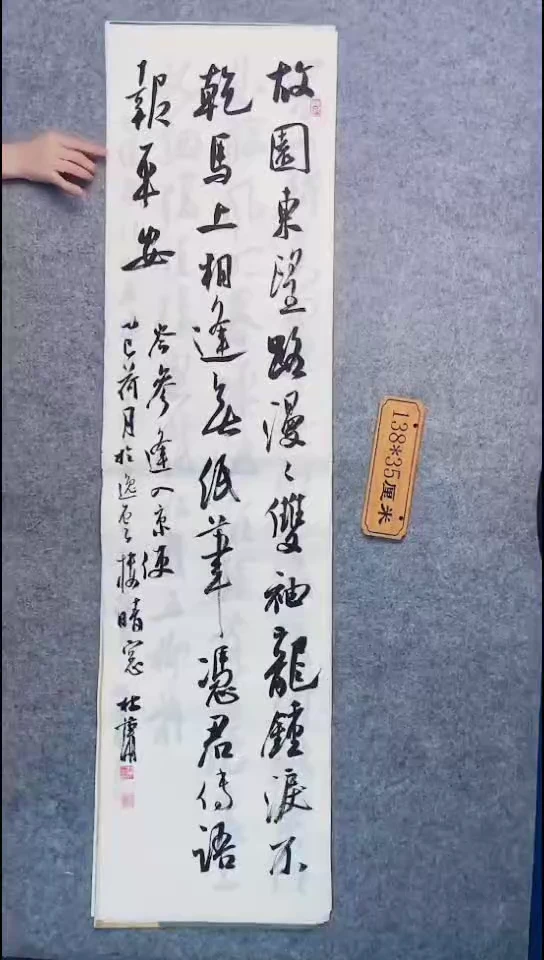 故園東望路漫漫雙袖龍鍾淚不
乾馬上相逢無紙筆憑君傳語
報平安
岑參逢入京使
乙巳荷月於逸雲樓晴窗 杜
138*35厘米